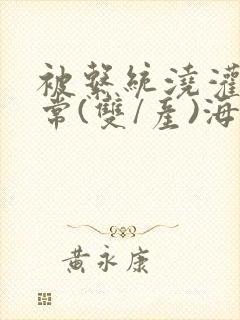 被繫統澆灌
常(雙/產)海
黃永康